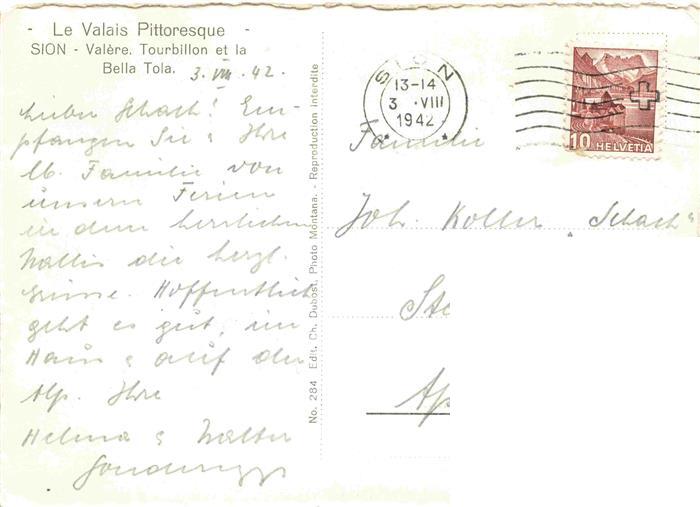 - Le Valais Pittoresque -
SION - Valère. Tourbillon et la
Bella Tola.
3. VIII. 42.
Lieber Schach! Em-
pfangen Sie & Ihre
lb. Familie von
unsern Ferien
in dem herrlichen
Wallis die herzl.
Grüsse. Hoffentlich
geht es gut, im
Haus & auf der
Alp. Ihre
Helena & Walter
No. 284 Edit. Ch. Dubost, Photo Montana. - Reproduction Interdite
SION
13-14
3. VIII
1942
10 HELVETIA
Familie
Joh. Koller "Schach"